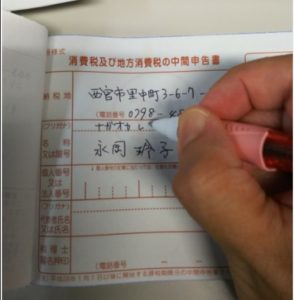 様式
消費税及び地方消費税の中間申告書
納税地
西宮市里中町3-6-7-
(電話番号 0798-
(フリガナ)
ナガオカ レ
名称
又は屋号
永岡 玲子
個人番号
又は
法人番号
(フリガナ)
代表者氏名
又は氏名
税理士
署名押印
(電話番号